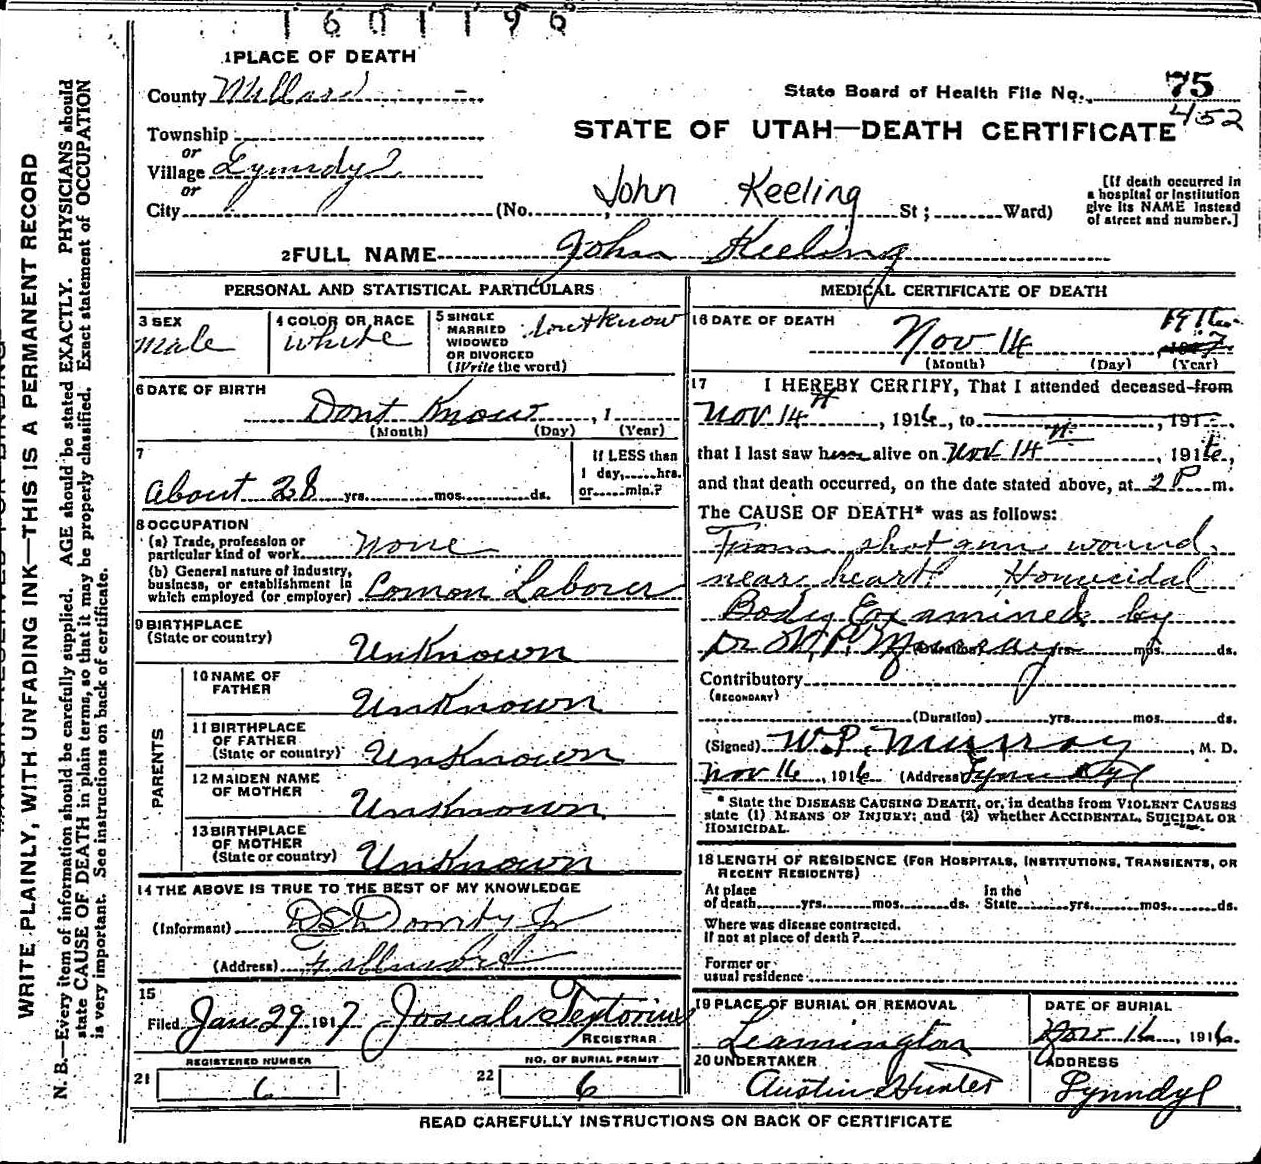 1601196
1 PLACE OF DEATH
County Millard
State Board of Health File No. 75
452
Township
or
STATE OF UTAH—DEATH CERTIFICATE
Village Lynndyl
or
John Keeling
City (No. St; Ward)
[If death occurred in a hospital or institution give its NAME instead of street and number.]
2 FULL NAME John Keeling
PERSONAL AND STATISTICAL PARTICULARS
3 SEX
Male
4 COLOR OR RACE
White
5 SINGLE MARRIED WIDOWED OR DIVORCED (Write the word)
dont know
6 DATE OF BIRTH
Dont Know, 1
(Month) (Day) (Year)
7
If LESS than
1 day, hrs.
or min.?
About 28 yrs. mos. ds.
8 OCCUPATION
(a) Trade, profession or
particular kind of work None
(b) General nature of industry,
business, or establishment in
which employed (or employer) Comon Laborer
9 BIRTHPLACE
(State or country)
Unknown
PARENTS
10 NAME OF
FATHER
Unknown
11 BIRTHPLACE
OF FATHER
(State or country) Unknown
12 MAIDEN NAME
OF MOTHER
Unknown
13 BIRTHPLACE
OF MOTHER
(State or country) Unknown
14 THE ABOVE IS TRUE TO THE BEST OF MY KNOWLEDGE
(Informant) Jr
(Address) Fillmore
15
Filed Jan 29 1917 Josiah
REGISTRAR
REGISTERED NUMBER
21 6
NO. OF BURIAL PERMIT
22 6
MEDICAL CERTIFICATE OF DEATH
16 DATE OF DEATH
Nov 14
(Month) (Day) (Year)
17 I HEREBY CERTIFY, That I attended deceased from
Nov 14th, 1916, to , 191
that I last saw alive on Nov 14th, 1916,
and that death occurred, on the date stated above, at 2 P m.
The CAUSE OF DEATH* was as follows:
From shot gun wound
near heart Homicidal
Body Examined by
Dr W.P. Murray
(Duration) yrs. mos. ds.
Contributory
(SECONDARY)
(Duration) yrs. mos. ds.
(Signed) W.P. Murray, M. D.
Nov 16, 1916 (Address) Lynndyl
* State the DISEASE CAUSING DEATH, or, in deaths from VIOLENT CAUSES
state (1) MEANS OF INJURY; and (2) whether ACCIDENTAL, SUICIDAL OR
HOMICIDAL.
18 LENGTH OF RESIDENCE (FOR HOSPITALS, INSTITUTIONS, TRANSIENTS, OR
RECENT RESIDENTS)
At place In the
of death yrs. mos. ds. State yrs. mos. ds.
Where was disease contracted,
If not at place of death?
Former or
usual residence
19 PLACE OF BURIAL OR REMOVAL
Leamington
DATE OF BURIAL
Nov 16, 1916.
20 UNDERTAKER
Austin Hunter
ADDRESS
Lynndyl
READ CAREFULLY INSTRUCTIONS ON BACK OF CERTIFICATE
WRITE PLAINLY, WITH UNFADING INK—THIS IS A PERMANENT RECORD
N. B.—Every item of information should be carefully supplied. AGE should be stated EXACTLY. PHYSICIANS should
state CAUSE OF DEATH in plain terms, so that it may be properly classified. Exact statement of OCCUPATION
is very important. See instructions on back of certificate.